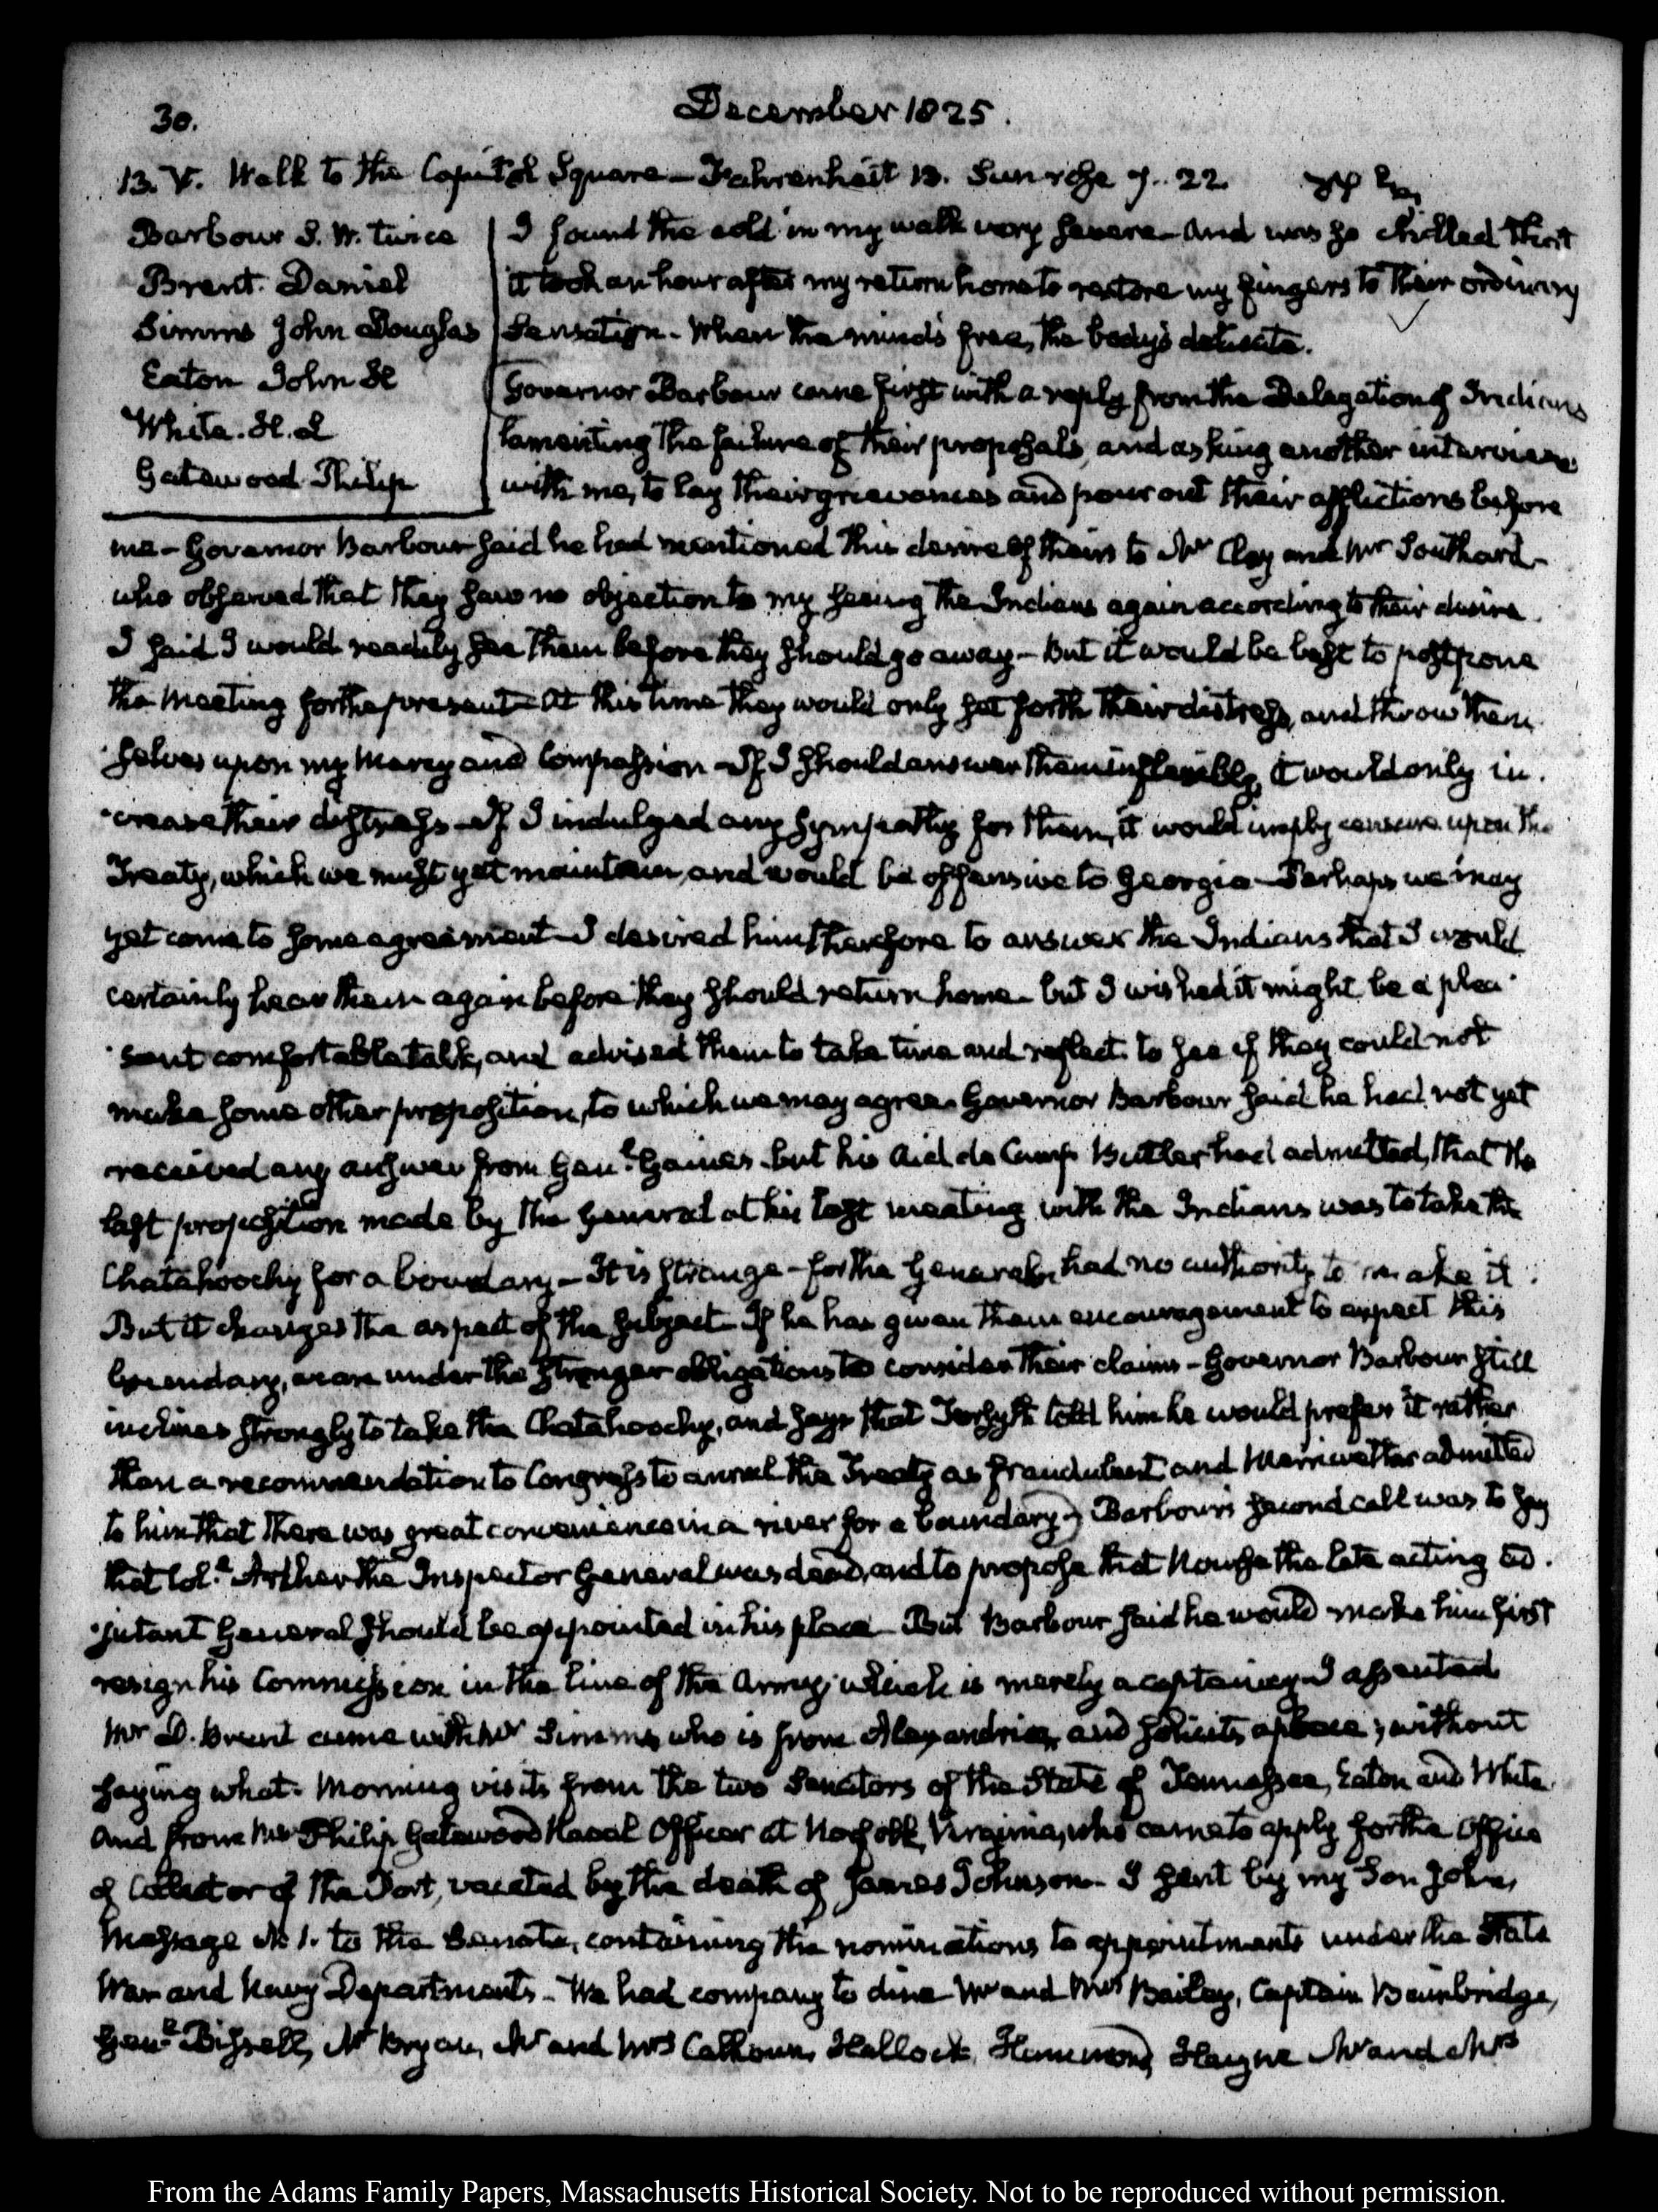 30.
December 1825.
13. V. Walk to the Capitol Square — Fahrenheit 13. Sun rose 7.. 22.
Barbour S. W. twice
Brent. Daniel
Simms John Douglas
Eaton John H
White. H. L
Gatewood Philip
I found the cold in my walk very severe — and was so chilled that
it took an hour after my return home to restore my fingers to their ordinary
sensation. When the mind's free, the body's delicate.
Governor Barbour came first with a reply from the Delegation of Indians
lamenting the failure of their proposals, and asking another interview
with me, to lay their grievances and pour out their afflictions before
me — Governor Barbour said he had mentioned this desire of theirs to Mr Clay and Mr Southard —
who observed that they saw no objection to my seeing the Indians again according to their desire.
I said I would readily see them before they should go away — But it would be best to postpone
the meeting for the present — At this time they would only set forth their distress, and throw them
selves upon my mercy and compassion — If I should answer them inflexibly, it would only in.
crease their distress — If I indulged any sympathy for them, it would imply censure upon the
Treaty, which we must yet maintain, and would be offensive to Georgia — Perhaps we may
yet come to some agreement — I desired him therefore to answer the Indians that I would
certainly hear them again before they should return home — but I wished it might be a plea
sant comfortable talk, and advised them to take time and reflect to see if they could not
make some other proposition, to which we may agree. Governor Barbour said he had not yet
received any answer from Genl. Gaines — but his Aid de Camp Butler had admitted, that the
last proposition made by the General at his last meeting with the Indians was to take the
Chatahoochy for a boundary — It is strange — for the General had no authority to make it.
But it changes the aspect of the subject — If he has given them encouragement to expect this
boundary, we are under the stronger obligations to consider their claims — Governor Barbour still
inclines strongly to take the Chatahoochy, and says that Forsyth told him he would prefer it rather
than a recommendation to Congress to annul the Treaty as fraudulent and Meriwether admitted
to him that there was great convenience in a river for a boundary — Barbour's second call was to say
that Col. Archer the Inspector General was dead, and to propose that Nourse the late acting Ad.
jutant General should be appointed in his place — But Barbour said he would make him first
resign his Commission in the line of the Army, which is merely a captaincy. I assented
Mr D. Brent came with Mr Simms, who is from Alexandria, and solicits a place; without
saying what. Morning visits from the two Senators of the State of Tennessee, Eaton and White.
And from Mr Philip Gatewood Naval Officer at Norfolk, Virginia, who came to apply for the Office
of Collector of the Port, vacated by the death of James Johnson. I sent by my Son John,
Message N. 1. to the Senate, containing the nominations to appointments under the State
War and Navy Departments. We had company to dine Mr and Mrs Bailey, Captain Bainbridge,
Genl. Bissell, Mr Bryan, Mr and Mrs Calhoun, Hallock, Hammond, Hayne Mr and Mrs
From the Adams Family Papers, Massachusetts Historical Society. Not to be reproduced without permission.